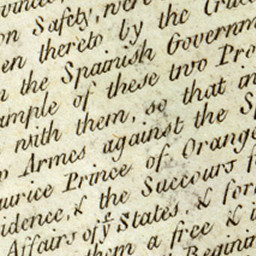 on Safety, were
en thereto by the Crue
n the Spainish Governm
ample of these two Pro
with them, so that in
Armes against the Sp
urice Prince of Orange
idence, & the Succours f
Affairs of yᵉ States, & for
them a free & i
Begining